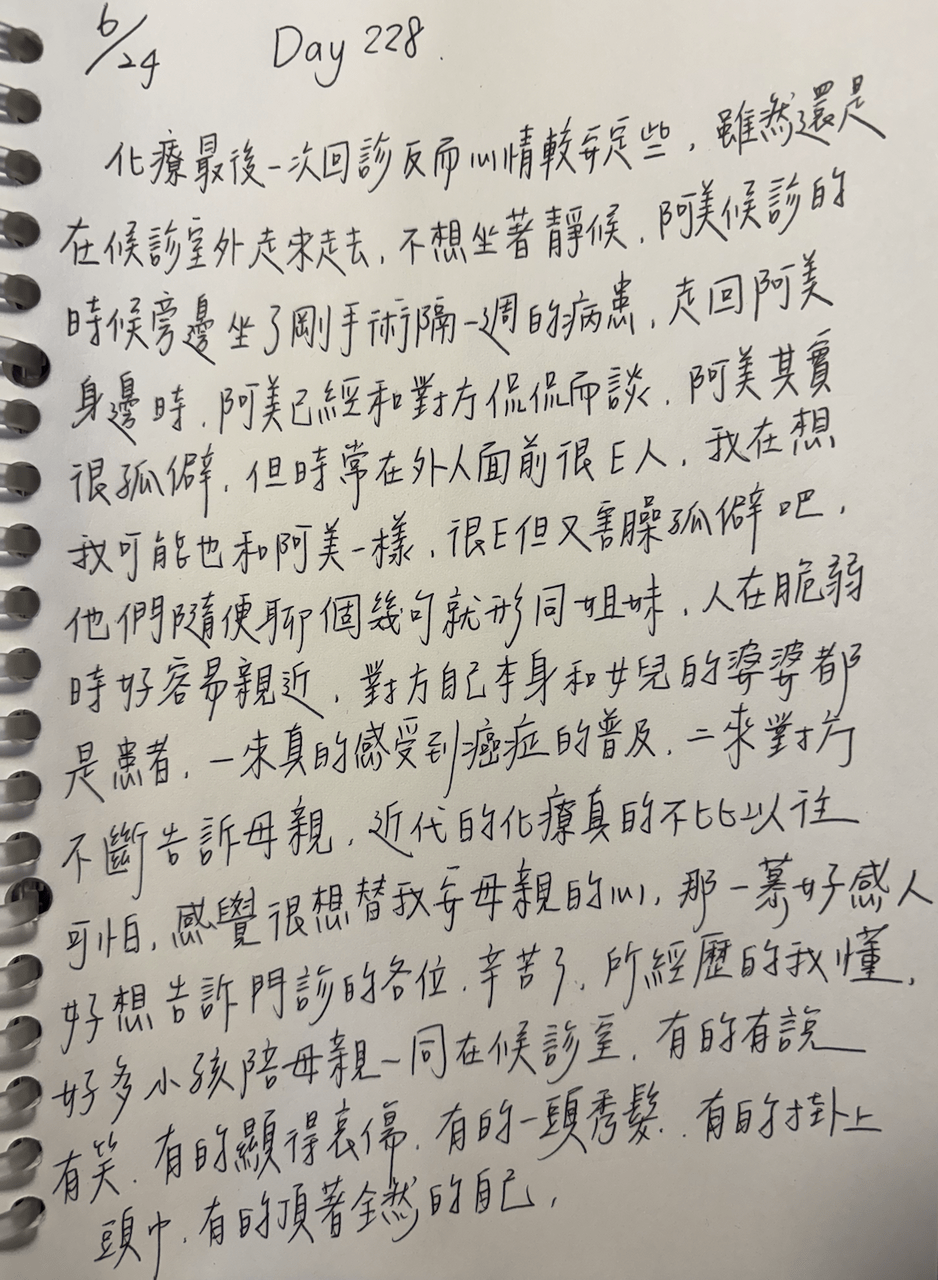 6/24 Day 228.
化療最後一次回診反而心情較安定些，雖然還是
在候診室外走來走去，不想坐著靜候，阿美候診的
時候旁邊坐了剛手術隔一週的病患，走回阿美
身邊時，阿美已經和對方侃侃而談，阿美其實
很孤僻，但時常在外人面前很E人，我在想
我可能也和阿美一樣，很E但又害臊孤僻吧，
他們隨便聊個幾句就形同姐妹，人在脆弱
時好容易親近，對方自己本身和女兒的婆婆都
是患者，一來真的感受到癌症的普及，二來對方
不斷告訴母親，近代的化療真的不比以往
可怕，感覺很想替我安母親的心，那一幕好感人
好想告訴門診的各位，辛苦了，所經歷的我懂，
好多小孩陪母親一同在候診室，有的有說
有笑，有的顯得哀傷，有的一頭秀髮，有的掛上
頭巾，有的頂著全然的自己，